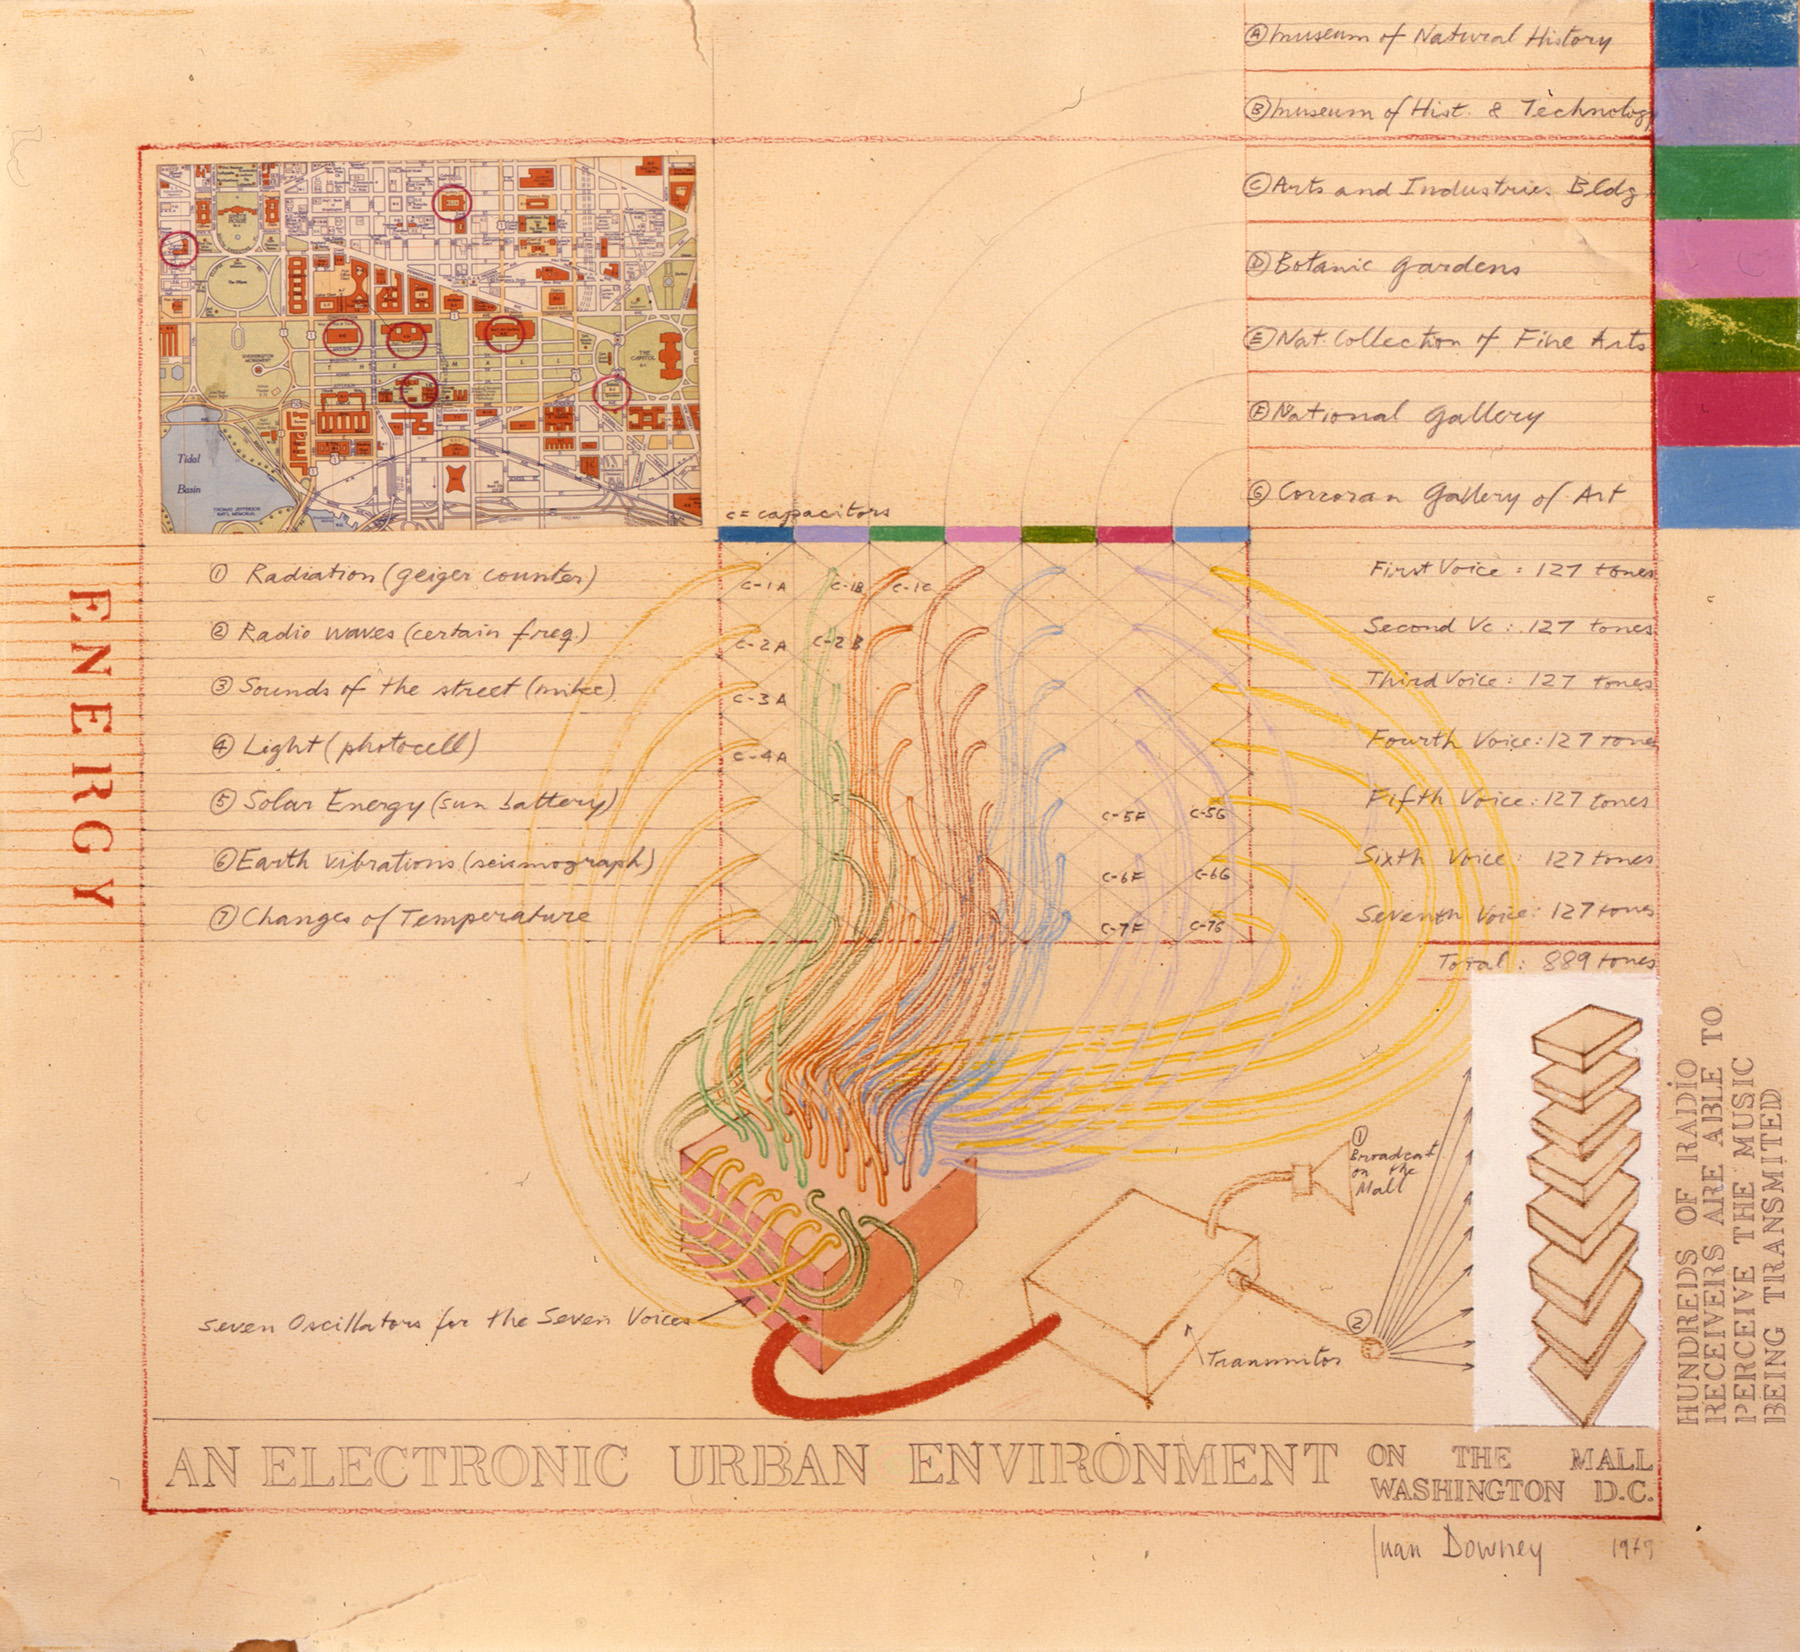 Ⓐ Museum of Natural History
Ⓑ Museum of Hist. & Technology
Ⓒ Arts and Industries Bldg.
Ⓓ Botanic Gardens
Ⓔ Nat. Collection of Fine Arts
Ⓕ National Gallery
Ⓖ Corcoran Gallery of Art
THE MALL
THE CAPITOL
Tidal
Basin
THOMAS JEFFERSON
MEMORIAL
c = capacitors
ENERGY
① Radiation (geiger counter)
② Radio waves (certain freq.)
③ Sounds of the street (mike)
④ Light (photocell)
⑤ Solar Energy (sun battery)
⑥ Earth vibrations (seismograph)
⑦ Changes of Temperature
C-1A C-1B C-1C
C-2A C-2B
C-3A
C-4A
C-5F C-5G
C-6F C-6G
C-7F C-7G
First Voice : 127 tones
Second Vc : 127 tones
Third Voice : 127 tones
Fourth Voice : 127 tones
Fifth Voice : 127 tones
Sixth Voice : 127 tones
Seventh Voice : 127 tones
Total : 889 tones
Seven Oscillators for the Seven Voices
①
Broadcast
on the
Mall
②
Transmitor
HUNDREDS OF RADIO
RECEIVERS ARE ABLE TO
PERCEIVE THE MUSIC
BEING TRANSMITED
AN ELECTRONIC URBAN ENVIRONMENT
ON THE MALL
WASHINGTON D.C.
Juan Downey 1969